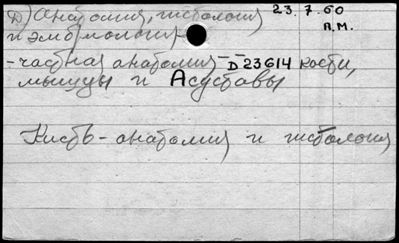 Д) Анатомия, гистология 23.7.60
и эмбриология А.М.
- частная анатомия - D 23614 кости,
мышцы и Асуставы
Кисть - анатомия и гистология